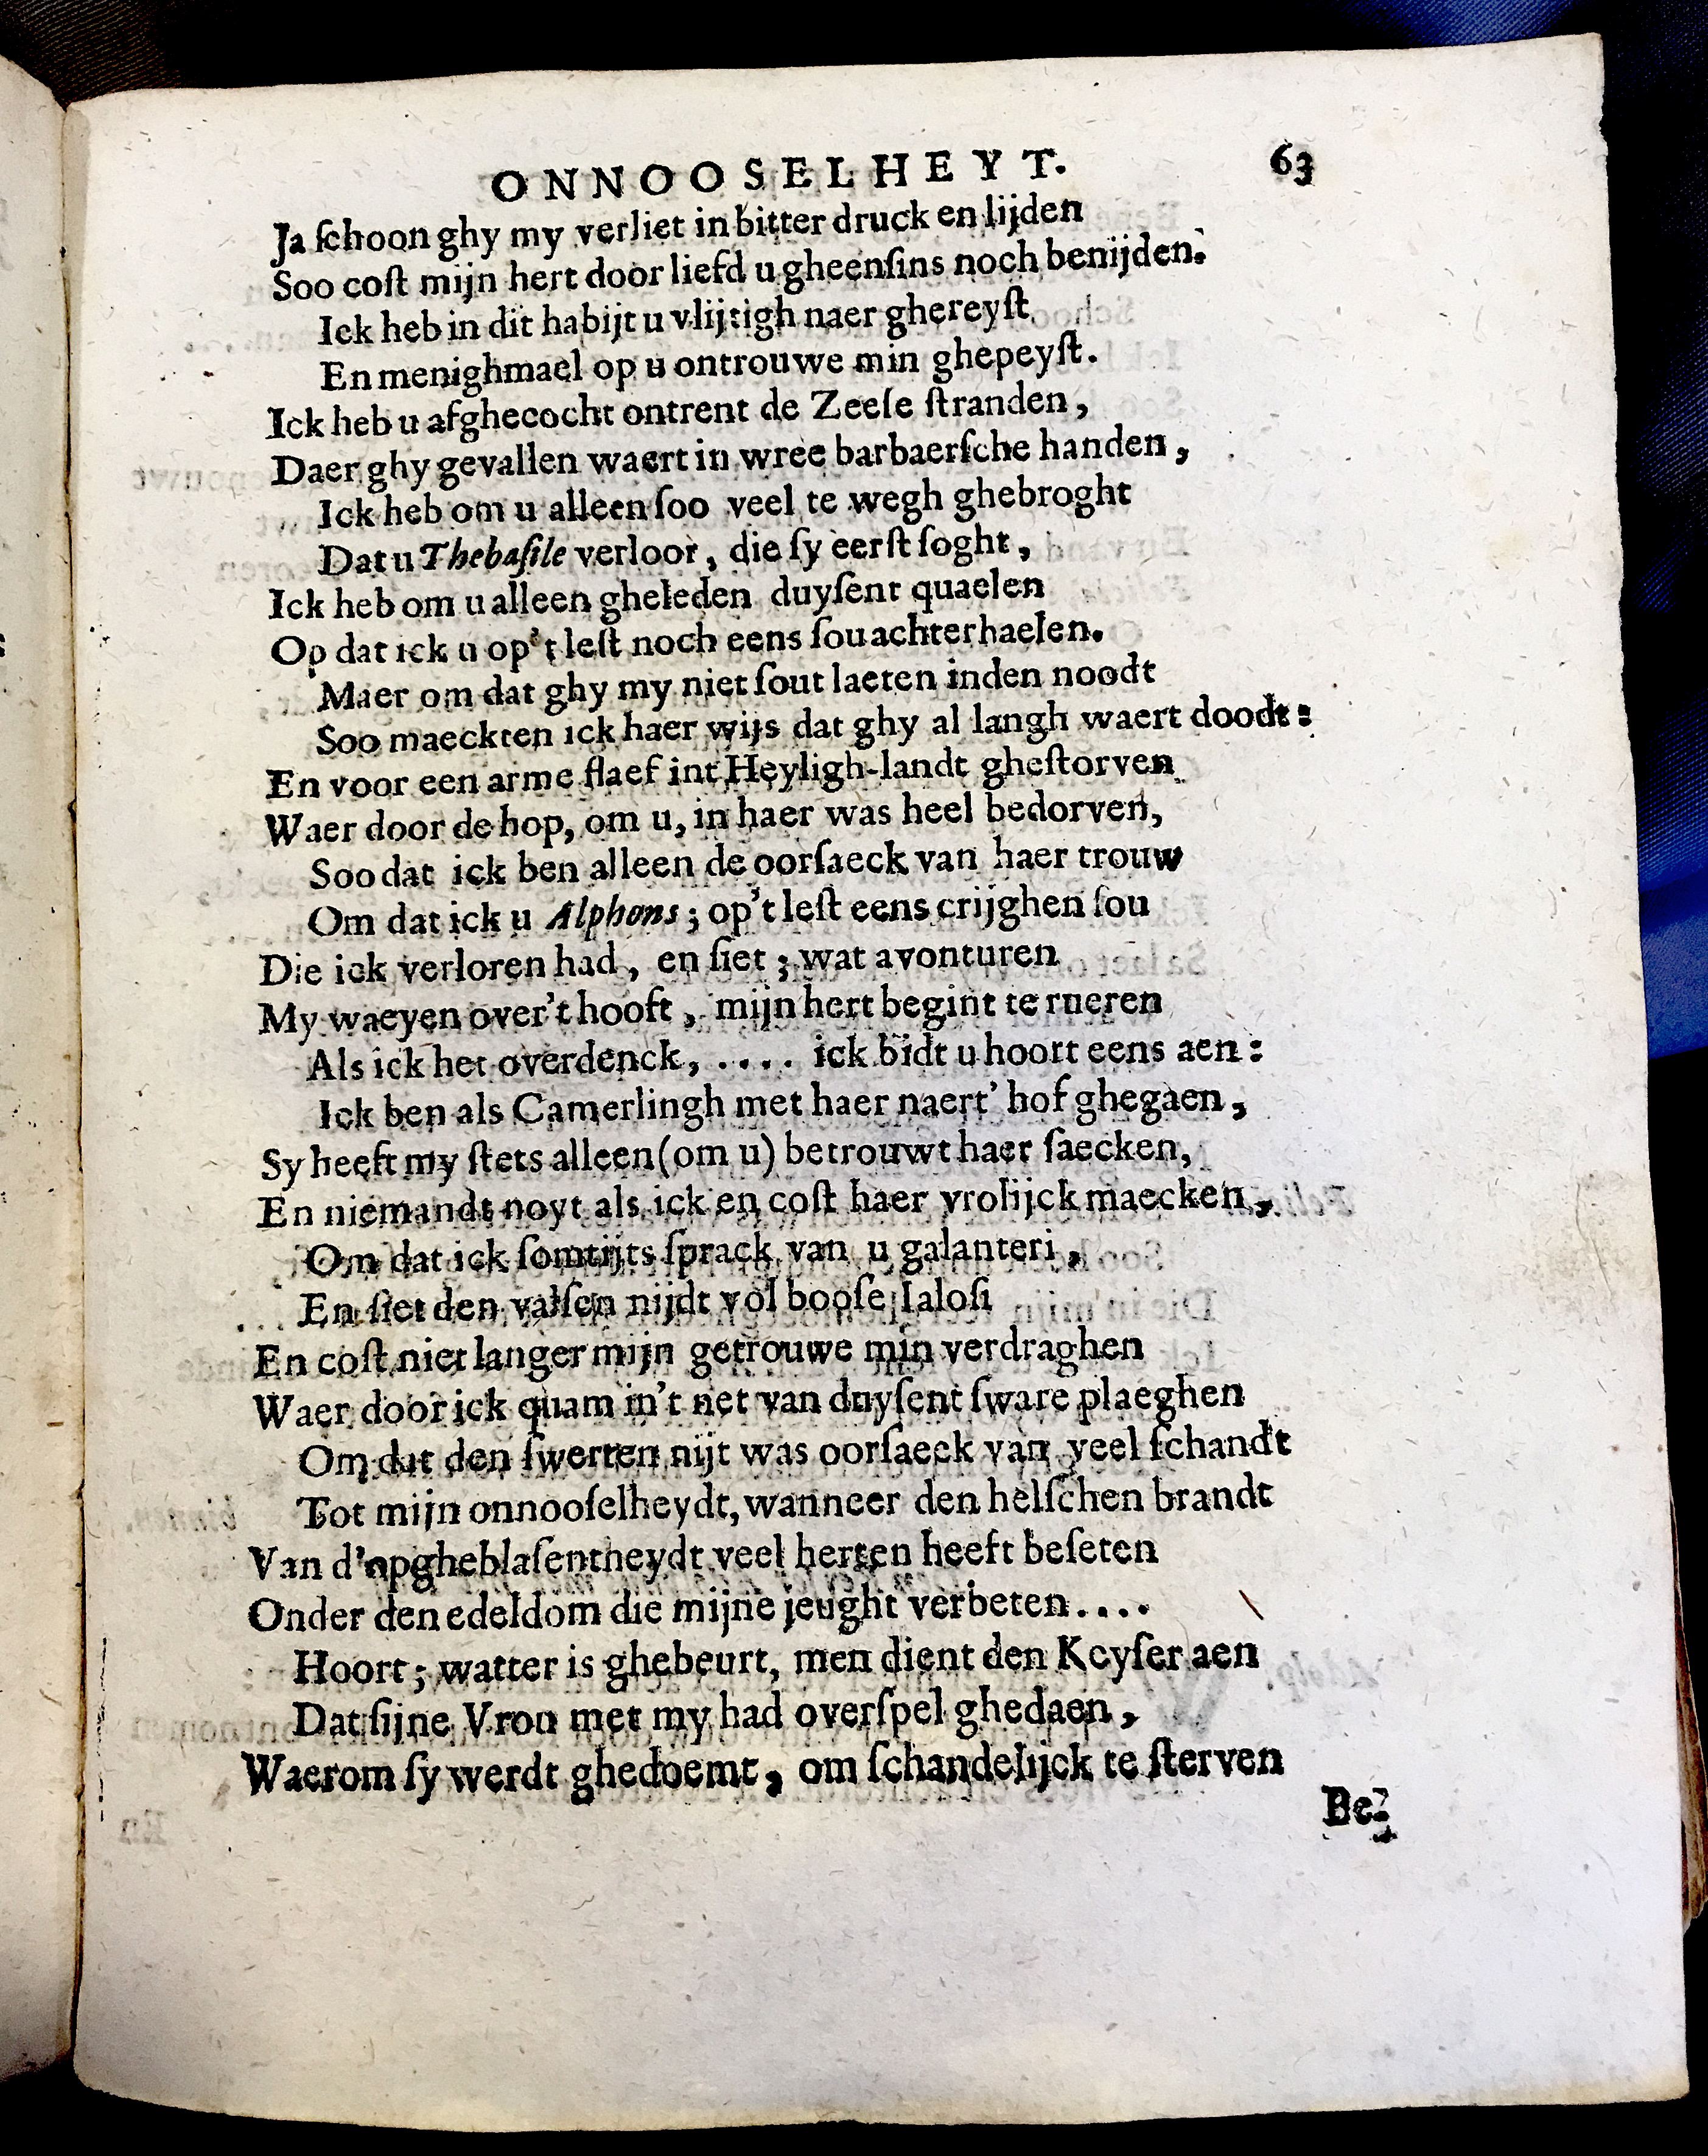 ONNOOSELHEYT. 63
Ja ſchoon ghy my verliet in bitter druck en lijden
Soo coſt mijn hert door liefd u gheenſins noch benijden.
Ick heb in dit habijt u vlijtigh naer ghereyſt
En menighmael op u ontrouwe min ghepeyſt.
Ick heb u afghecocht ontrent de Zeeſe ſtranden,
Daer ghy gevallen waert in wree barbaerſche handen,
Ick heb om u alleen ſoo veel te wegh ghebroght
Dat u Thebaſile verloor, die ſy eerſt ſoght,
Ick heb om u alleen gheleden duyſent quaelen
Op dat ick u op't leſt noch eens ſou achterhaelen.
Maer om dat ghy my niet ſout laeten inden noodt
Soo maeckten ick haer wijs dat ghy al langh waert doodt:
En voor een arme ſlaef int Heyligh-landt gheſtorven
Waer door de hop, om u, in haer was heel bedorven,
Soo dat ick ben alleen de oorſaeck van haer trouw
Om dat ick u Alphons; op't leſt eens crijghen ſou
Die ick verloren had, en ſiet; wat avonturen
My waeyen over't hooft, mijn hert begint te rueren
Als ick het overdenck, .... ick bidt u hoort eens aen:
Ick ben als Camerlingh met haer naert' hof ghegaen,
Sy heeft my ſtets alleen (om u) betrouwt haer ſaecken,
En niemandt noyt als ick en coſt haer vrolijck maecken,
Om dat ick ſomtijts ſprack van u galanteri,
En ſiet den valſen nijdt vol booſe Ialoſi
En coſt niet langer mijn getrouwe min verdraghen
Waer door ick quam in't net van duyſent ſware plaeghen
Om dat den ſwerten nijt was oorſaeck van veel ſchandt
Tot mijn onnooſelheydt, wanneer den helſchen brandt
Van d'opgheblaſentheydt veel herten heeft beſeten
Onder den edeldom die mijne jeught verbeten....
Hoort; watter is ghebeurt, men dient den Keyſer aen
Dat ſijne Vrou met my had overſpel ghedaen,
Waerom ſy werdt ghedoemt, om ſchandelijck te ſterven
Be-